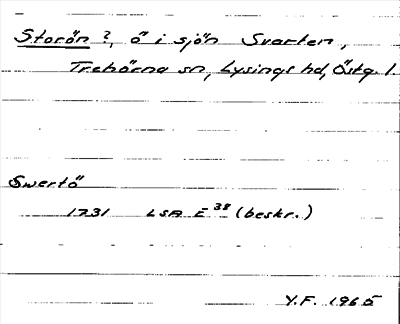 Storön ?, ö i sjön Svarten,
Trehörna sn, Lysings hd, Östg. l.
Swertö
1731 LSA E 38 (beskr.)
Y.F. 1965